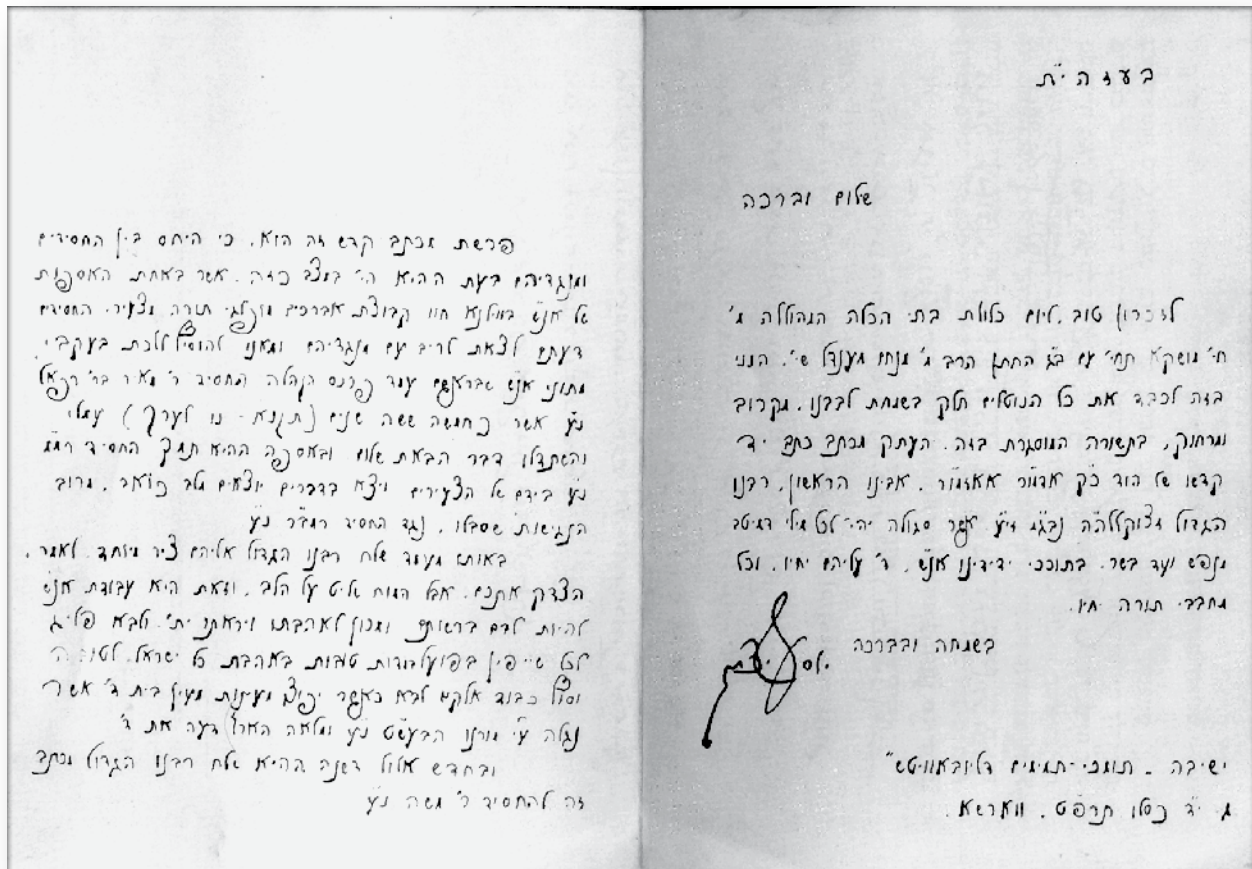 בעזה"ית
שלום וברכה
לזכרון טוב, ליום כלולת בתי הכלה המהוללה מ'
חי' מושקא תחי' עם ב"ג החתן הרב מ' מנחם מענדל שי', הנני
בזה לכבד את כל הנוטלים חלק בשמחת לבבנו, מקרוב
ומרחוק, בתשורה המוסגרת בזה, העתק מכתב כתב יד
קדשו של הוד כ"ק אדמו"ר אאזמו"ר, אבינו הראשון, רבנו
הגדול מצוקללה"ה נבג"מ זי"ע אשר סגולה יהי' לכל מילי דמיטב
מנפש ועד בשר, בתוככי ידידינו אנ"ש, ד' עליהם יחיו, וכל
מחבבי תורה יחיו.
בשמחה ובברכה
ישיבה - תומכי-תמימים דליובאוויטש"
ג' י"ד כסלו תרפ"ט, ווארשא.
פרשת מכתב קדש זה הוא, כי היחס בין החסידים
ומנגדיהם בעת ההיא הי' במצב כזה, אשר באחת האספות
של אנ"ש בווילנא חוו קבוצת אברכים מופלגי תורה מצעירי החסידים
דעתם לצאת לריב עם מנגדיהם ומאנו להוסיל ללכת בעקבי
מתוני אנ"ש שבראשם עמד פרנס הקהלה החסיד ר' מאיר בר' רפאל
נ"ע אשר כחמשה ששה שנים (תקנ"א - נו לערך) עמלו
והשתדלו דבר הבאת שלום ובאספה ההיא תמך החסיד רמ"מ
נ"ע בידם של הצעירים ויצא בדברים יוצאים מלב כואב, מרוב
הנגישות שסבלו, נגד החסיד רמב"ר נ"ע
באותו מעמד שלח רבנו הגדול אליהם ציר מיוחד, לאמר,
הצדק אתכם, אבל המוח שליט על הלב, וזאת היא עבודת אנ"ש
להיות לבם ברשותם ומכוון לאהבתו ויראתו ית', ולבא פליג
לכל שייפין בפועל בעבודות טובות באהבת כל ישראל, לטובה
וסו"ל כבוד אלקים לבא כאשר יפוצו מעינות מעין בית ד' אשר
נגלה ע"י מורנו הבעש"ט נ"ע ומלאה הארץ דעה את ד'
ובחדש אלול דשנה ההיא שלח רבנו הגדול מכתב
זה להחסיד ר' משה נ"ע